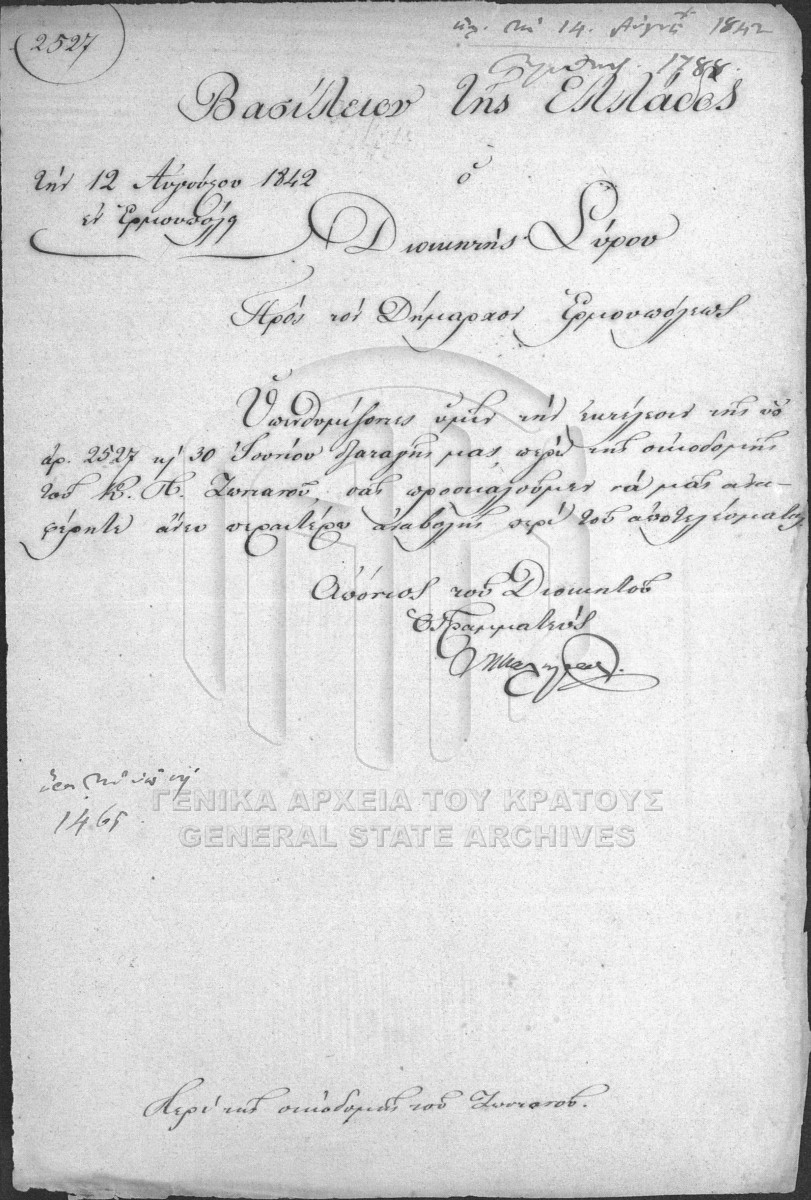 2527
τῇ 14. Αὐγού 1842
1788.
Βασίλειον τῆς Ἑλλάδος
τὴν 12 Αὐγούστου 1842
ἐν Ἑρμουπόλῃ
ὁ
Διοικητὴς Σύρου
Πρὸς τὸν Δήμαρχον Ἑρμουπόλεως
Ὑπενθυμίζοντες ὑμῖν τὴν ἐκτέλεσιν τῆς ὑπ
ἀρ. 2527 κ 30 Ἰουνίου διαταγῆς μας περὶ τῆς οἰκοδομῆς
τοῦ Κ. Α. σᾶς προσκαλοῦμεν νὰ μᾶς ἀνα-
φέρητε ἄνευ περαιτέρω ἀναβολῆς περὶ τοῦ ἀποτελέσματος
Ἀπόντος τοῦ Διοικητοῦ
Ὁ Γραμματεὺς
1465
ΓΕΝΙΚΑ ΑΡΧΕΙΑ ΤΟΥ ΚΡΑΤΟΥΣ
GENERAL STATE ARCHIVES
Περὶ τῆς οἰκοδομῆς τοῦ